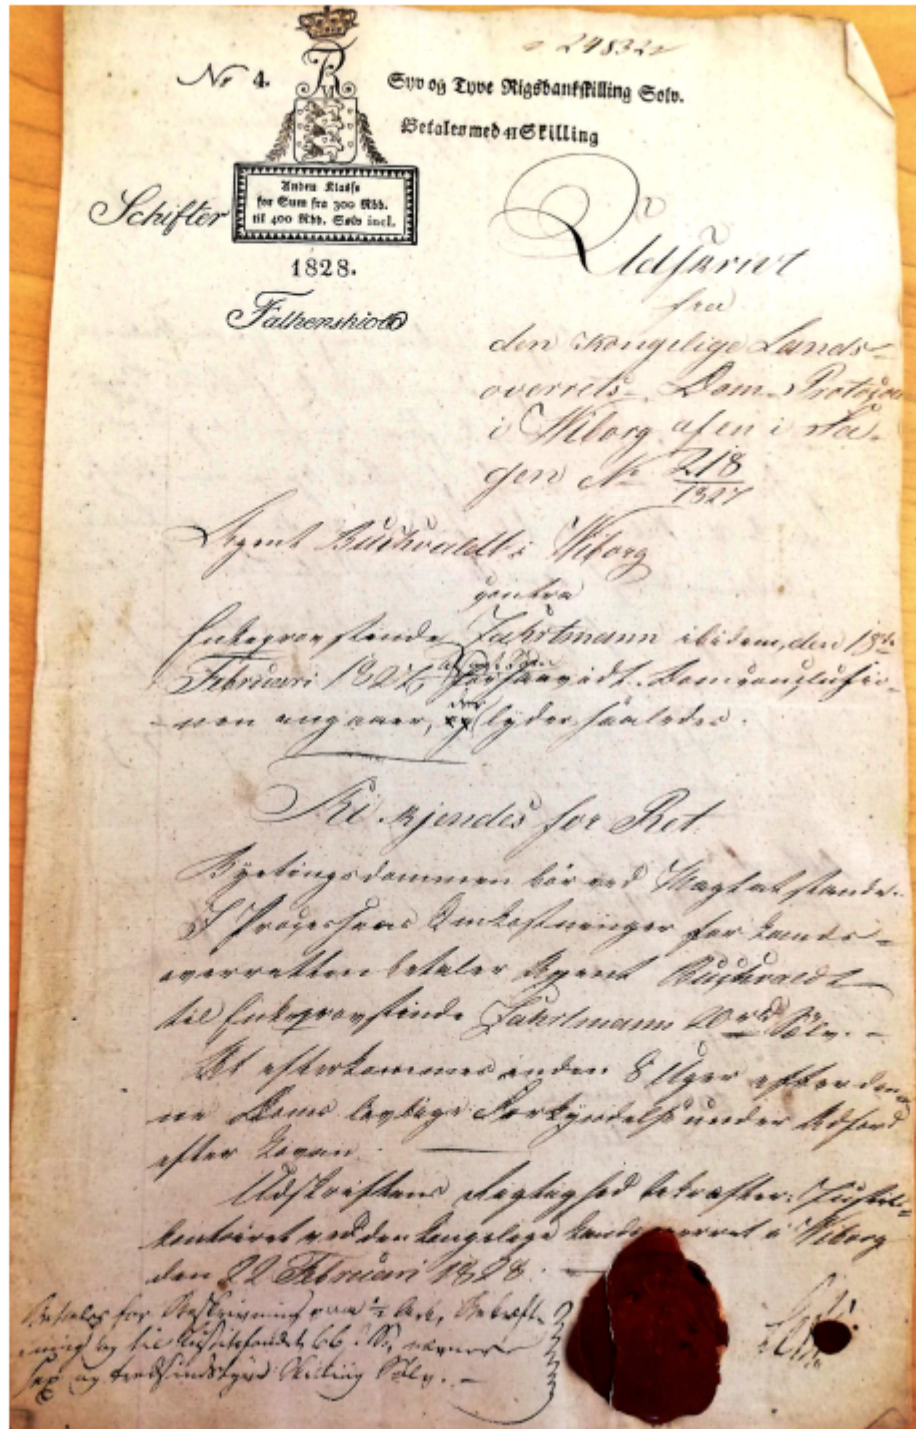 24832
No 4.
R
VI
Syv og Tyve Rigsbankskilling Solv.
Betales med 41 Skilling
Anden Klasse
for Sum fra 300 Rbd.
til 400 Rbd. Sølv incl.
Schifter
1828.
Falkenskiold
Udskrivt
fra
den Kongelige Lands-
overrets- Dom- Protocol
i Wiborg afen i Sa-
gen No 218
1827
Agent Buchvaldt i Wiborg
contra
Enkeprovstinde Fahrtmann ibidem, den 18de
Februari 1828, forsaavidt Domconclusio-
nen angaaer, lyder saaledes.
Thi kjendes for Ret
Byetingsdommen bør ved Magt at stande.
I Processens Omkostninger for Lands-
overretten betaler Agent Buchvaldt
til Enkeprovstinde Fahrtmann 20 rbd Sølv. -
At efterkommes inden 8 Uger efter den-
ne Doms lovlige Forkyndelse under Adfærd
efter Loven.
Udskriftens Rigtighed bekræfter: Justits-
kontoiret ved den kongelige Landsoverret i Wiborg
den 22 Februari 1828.
Betales for Beskrivning 1/2 Ark, Bekræft-
ning og til Justitsfondet 66 s. S., skriver
sex og tredsindstyve Skilling Sølv. -